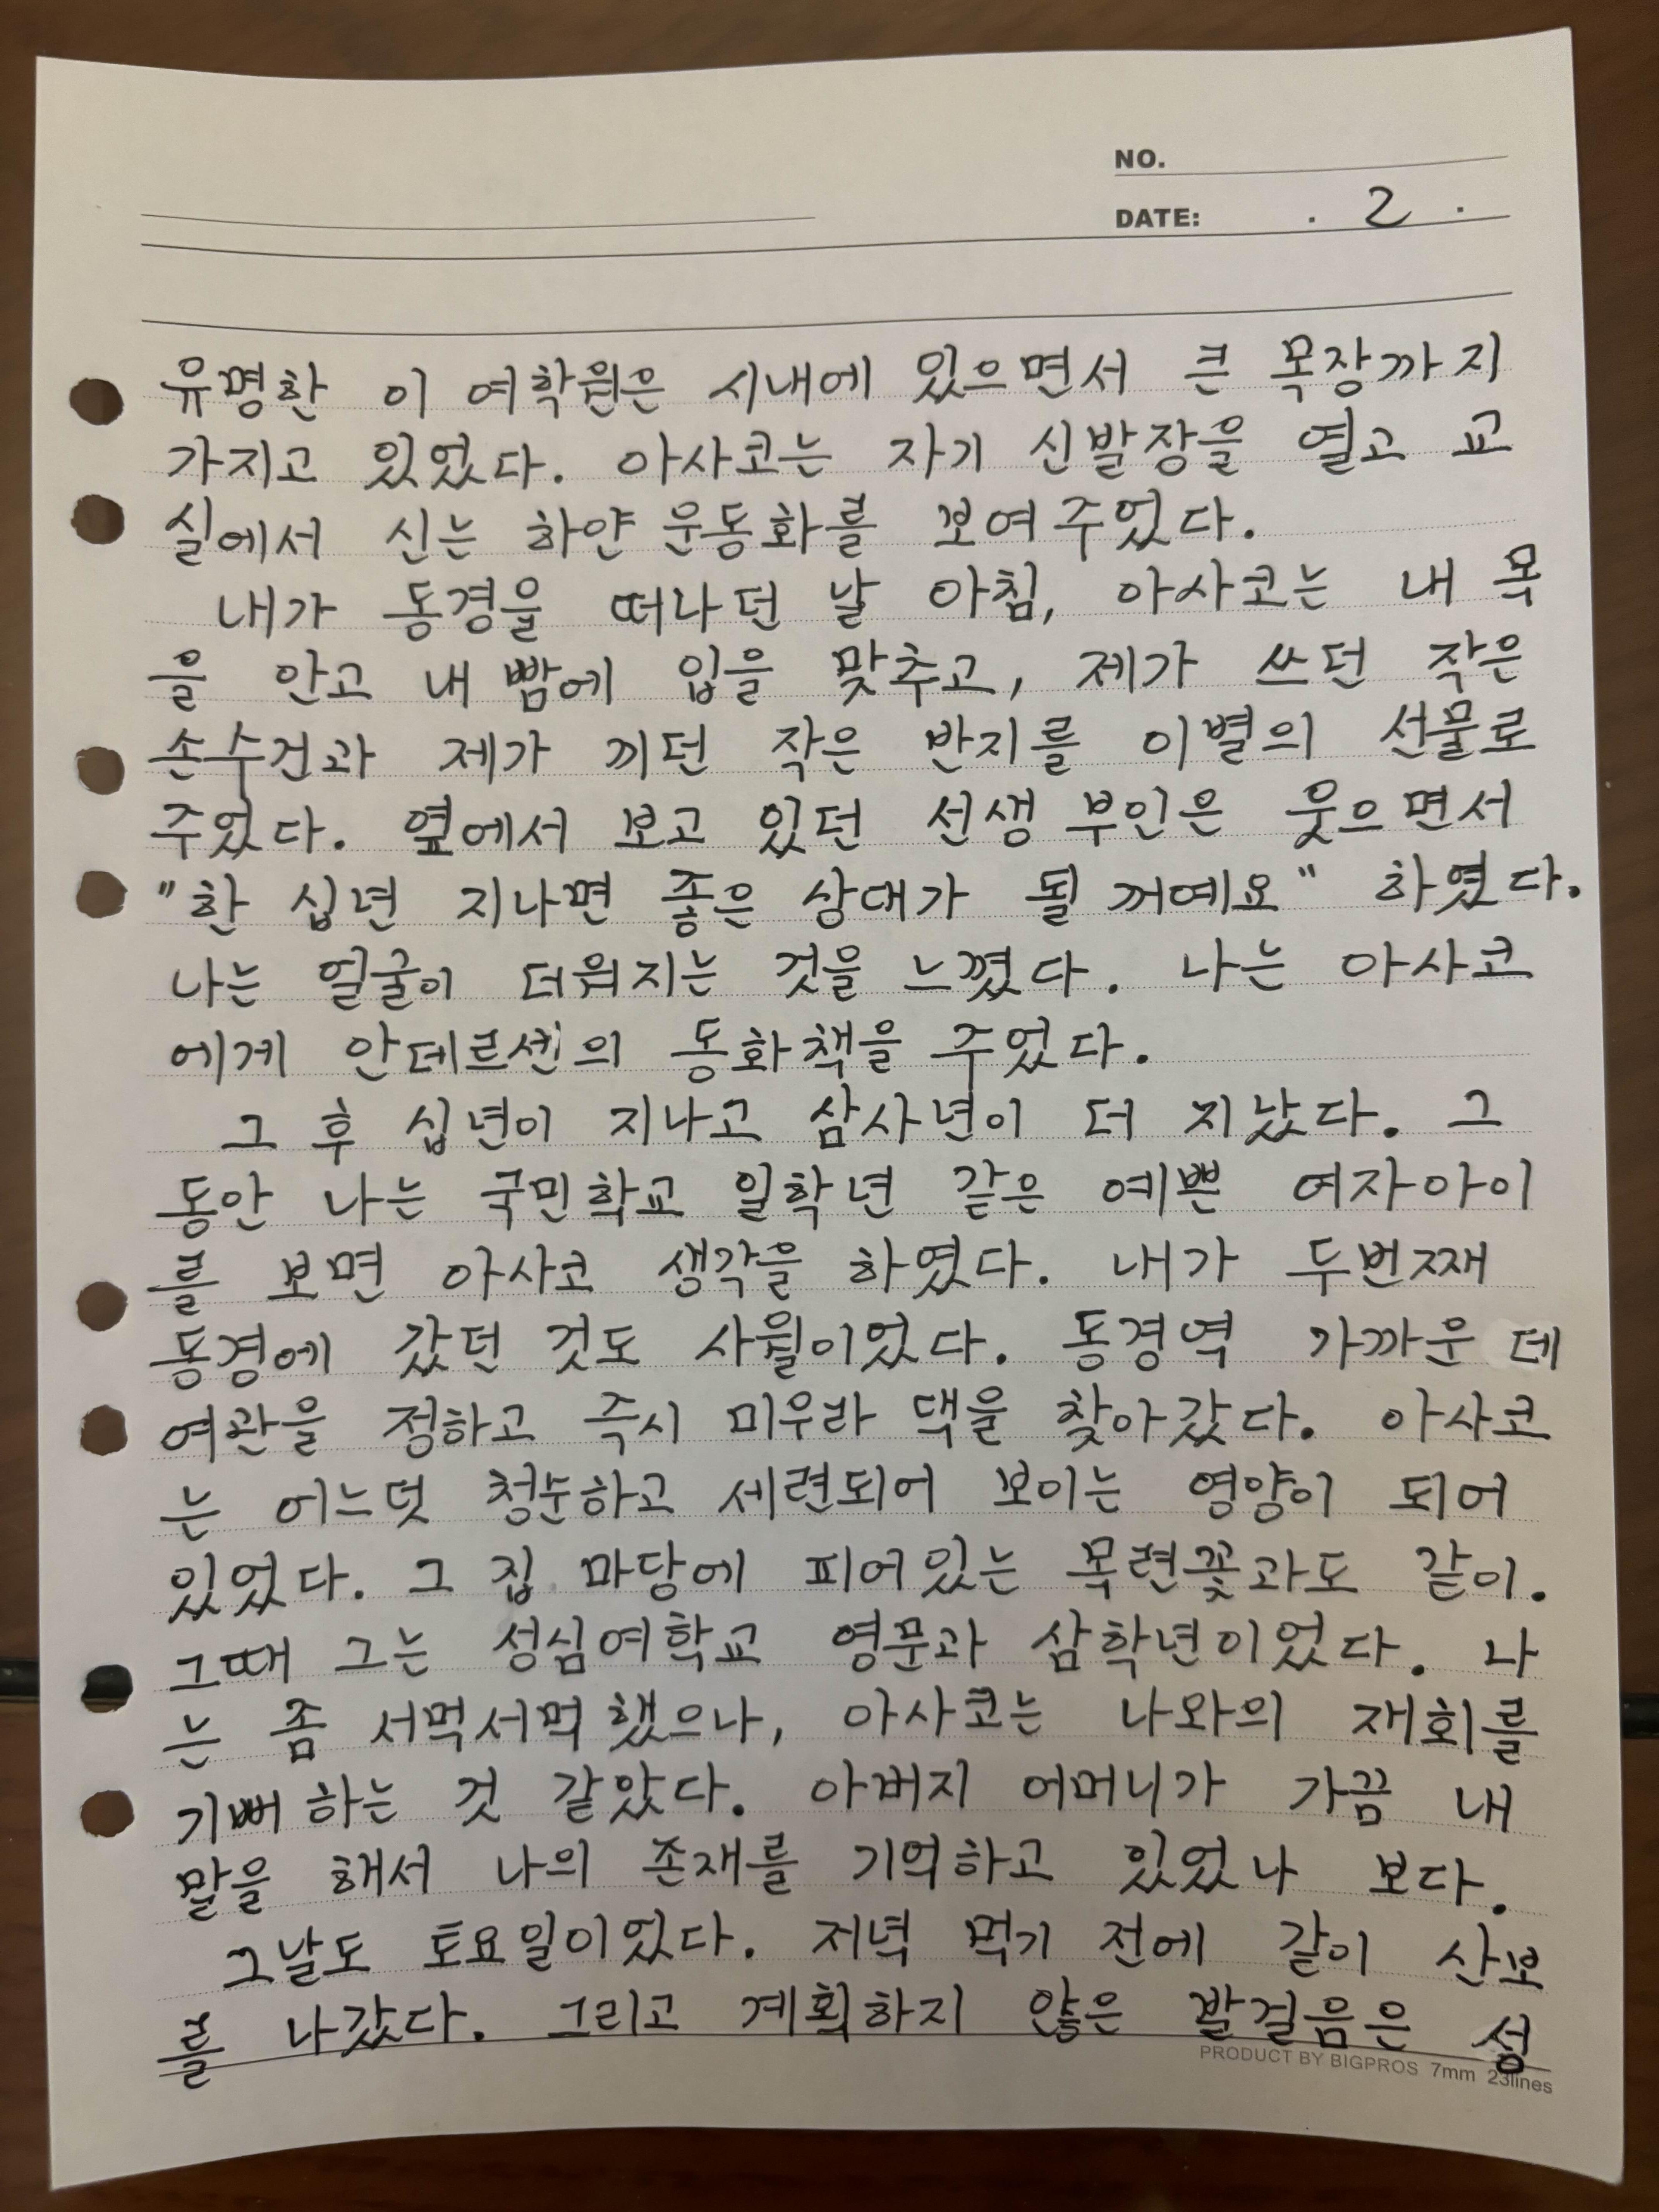 NO.
DATE: . 2 .
유명한 이 여학원은 시내에 있으면서 큰 목장까지
가지고 있었다. 아사코는 자기 신발장을 열고 교
실에서 신는 하얀 운동화를 보여주었다.
내가 동경을 떠나던 날 아침, 아사코는 내 목
을 안고 내 빰에 입을 맞추고, 제가 쓰던 작은
손수건과 제가 끼던 작은 반지를 이별의 선물로
주었다. 옆에서 보고 있던 선생 부인은 웃으면서
"한 십년 지나면 좋은 상대가 될 꺼예요" 하였다.
나는 얼굴이 더워지는 것을 느꼈다. 나는 아사코
에게 안데르센의 동화책을 주었다.
그 후 십년이 지나고 삼사년이 더 지났다. 그
동안 나는 국민학교 일학년 같은 예쁜 여자아이
를 보면 아사코 생각을 하였다. 내가 두번째
동경에 갔던 것도 사월이었다. 동경역 가까운 데
여관을 정하고 즉시 미우라 댁을 찾아갔다. 아사코
는 어느덧 청순하고 세련되어 보이는 영양이 되어
있었다. 그 집 마당에 피어있는 목련꽃과도 같이.
그때 그는 성심여학교 영문과 삼학년이었다. 나
는 좀 서먹서먹했으나, 아사코는 나와의 재회를
기뻐하는 것 같았다. 아버지 어머니가 가끔 내
말을 해서 나의 존재를 기억하고 있었나 보다.
그날도 토요일이었다. 저녁 먹기 전에 같이 산보
를 나갔다. 그리고 계획하지 않은 발걸음은 성
PRODUCT BY BIGPROS 7mm 23lines